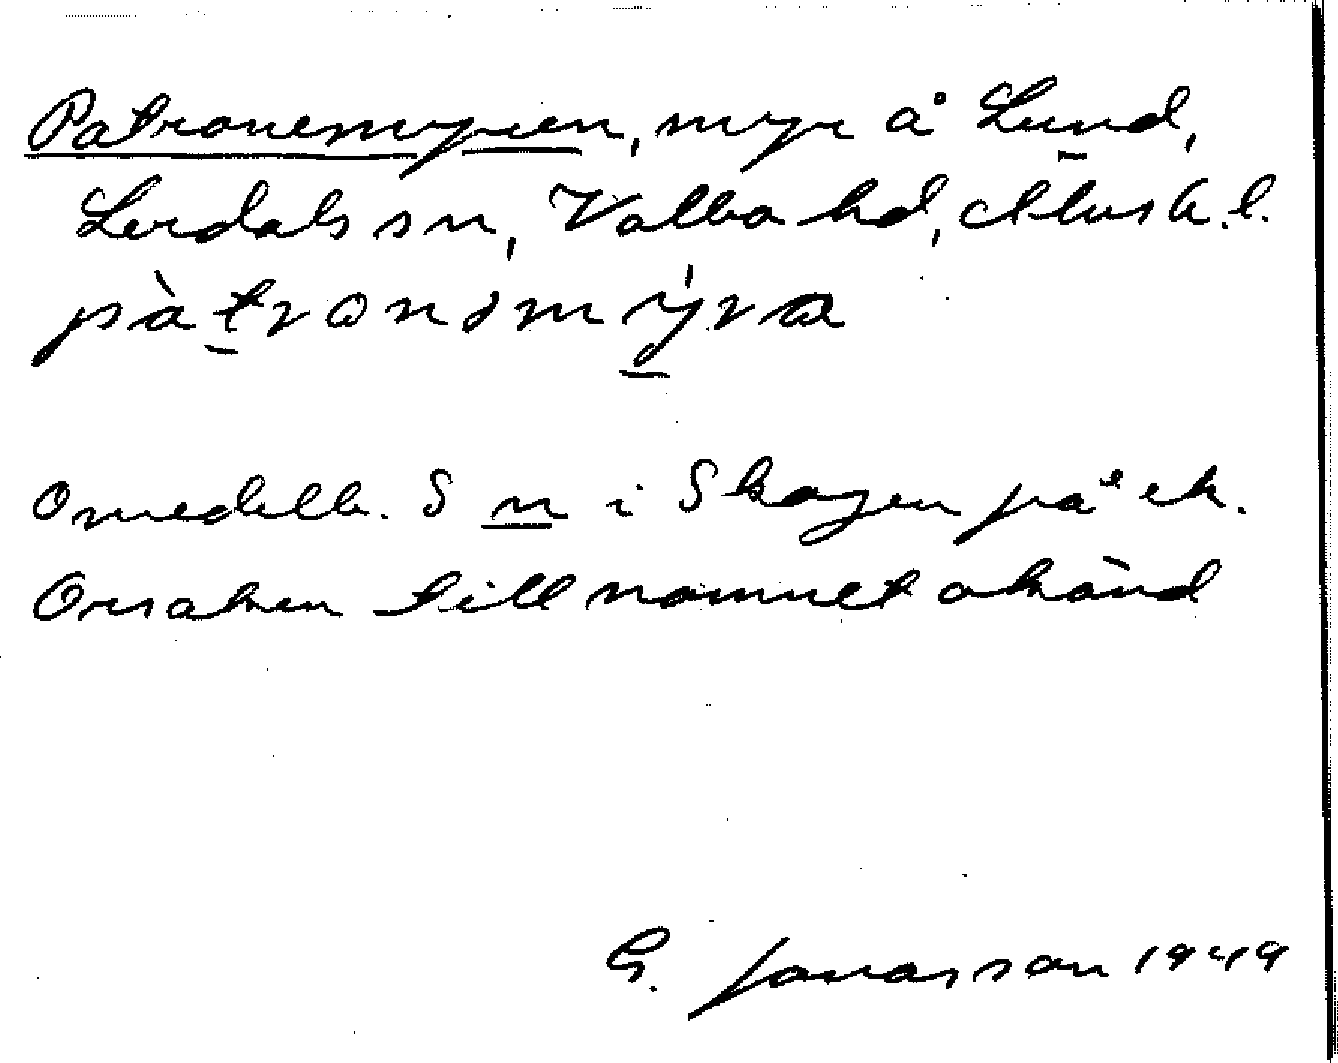 Patronemyren, myr å Lund,
Lerdals sn, Valbo hd, Älvsb. l.
pàtronəmýra
Omedelb. S m i Skogen på ek.
Orsaken till namnet okänd
G. Jonasson 1949